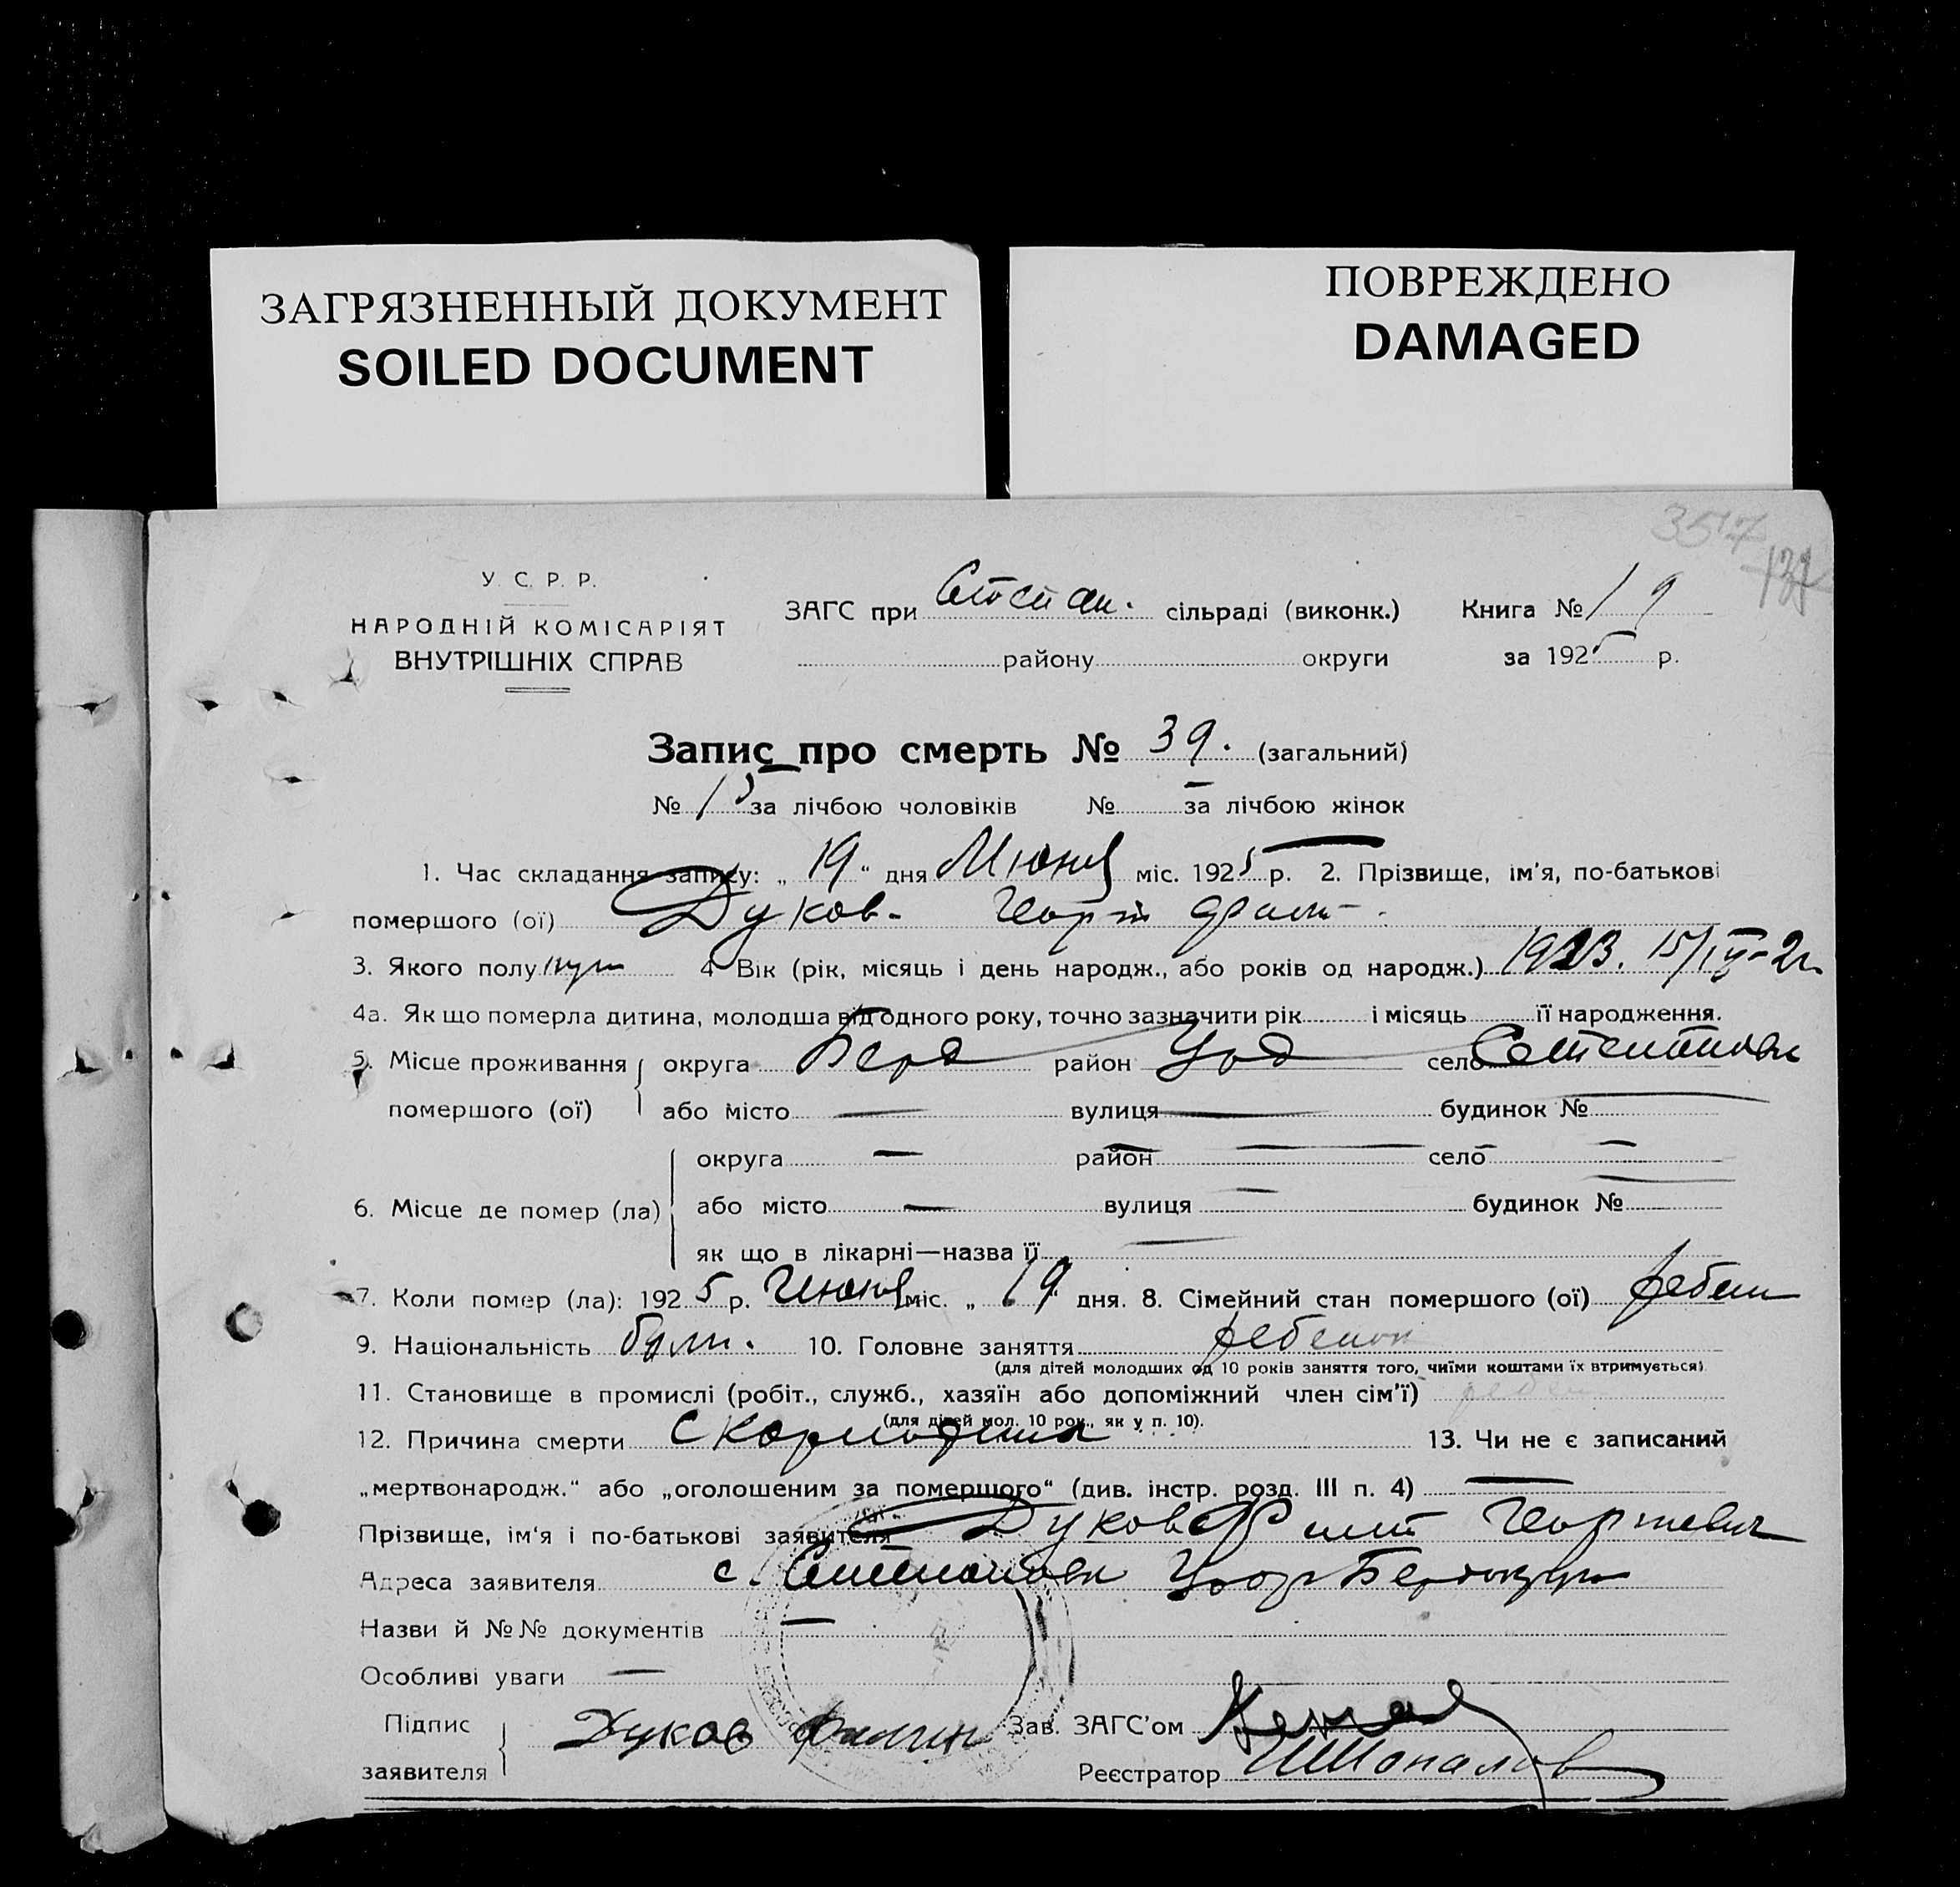 ЗАГРЯЗНЕННЫЙ ДОКУМЕНТ
SOILED DOCUMENT
ПОВРЕЖДЕНО
DAMAGED
357
У. С. Р. Р.
НАРОДНІЙ КОМІСАРІЯТ
ВНУТРІШНІХ СПРАВ
ЗАГС при сільраді (виконк.) Книга № 19
району округи за 1925 р.
Запис про смерть № 39. (загальний)
№ 15 за лічбою чоловіків № — за лічбою жінок
1. Час складання запису: „ 19 “ дня Июня міс. 1925 р. 2. Прізвище, ім'я, по-батькові
помершого (ої) Дуков
3. Якого полу муж 4 Вік (рік, місяць і день народж., або років од народж.) 1923. 15/IV-2г.
4а. Як що померла дитина, молодша від одного року, точно зазначити рік і місяць її народження.
5. Місце проживання округа Берд район Цод село
помершого (ої) або місто — вулиця — будинок № —
округа — район — село —
6. Місце де помер (ла) або місто — вулиця — будинок № —
як що в лікарні—назва її —
7. Коли помер (ла): 1925 р. Июня міс. „ 19 дня. 8. Сімейний стан помершого (ої) ребен
9. Національність болг. 10. Головне заняття ребенок
(для дітей молодших од 10 років заняття того, чиїми коштами їх втримується)
11. Становище в промислі (робіт., служб., хазяїн або допоміжний член сім'ї) ребен
(для дітей мол. 10 рок., як у п. 10).
12. Причина смерти 13. Чи не є записаний
„мертвонародж.“ або „оголошеним за помершого“ (див. інстр. розд. III п. 4) —
Прізвище, ім'я і по-батькові заявителя Дуков Георгиевич
Адреса заявителя с.
Назви й №№ документів —
Особливі уваги —
Підпис
заявителя
Дуков Филип
Зав. ЗАГС'ом
Реєстратор